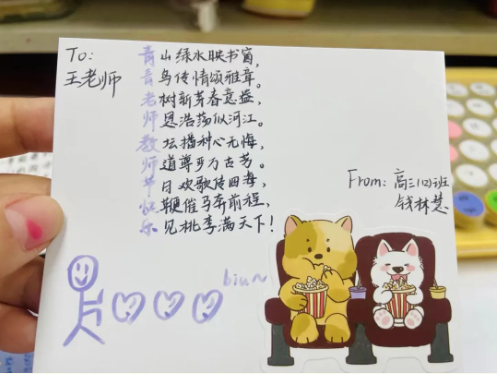 To:
王老师
青山绿水映书窗,
青鸟传情颂雅章。
老树新芽春意盎,
师恩浩荡似河江。
教坛播种心无悔,
师道尊严万古芳。
节日欢歌传四海,
快鞭催马奔前程,
乐见桃李满天下!
From: 高三(12)班
钱林慧
biu~